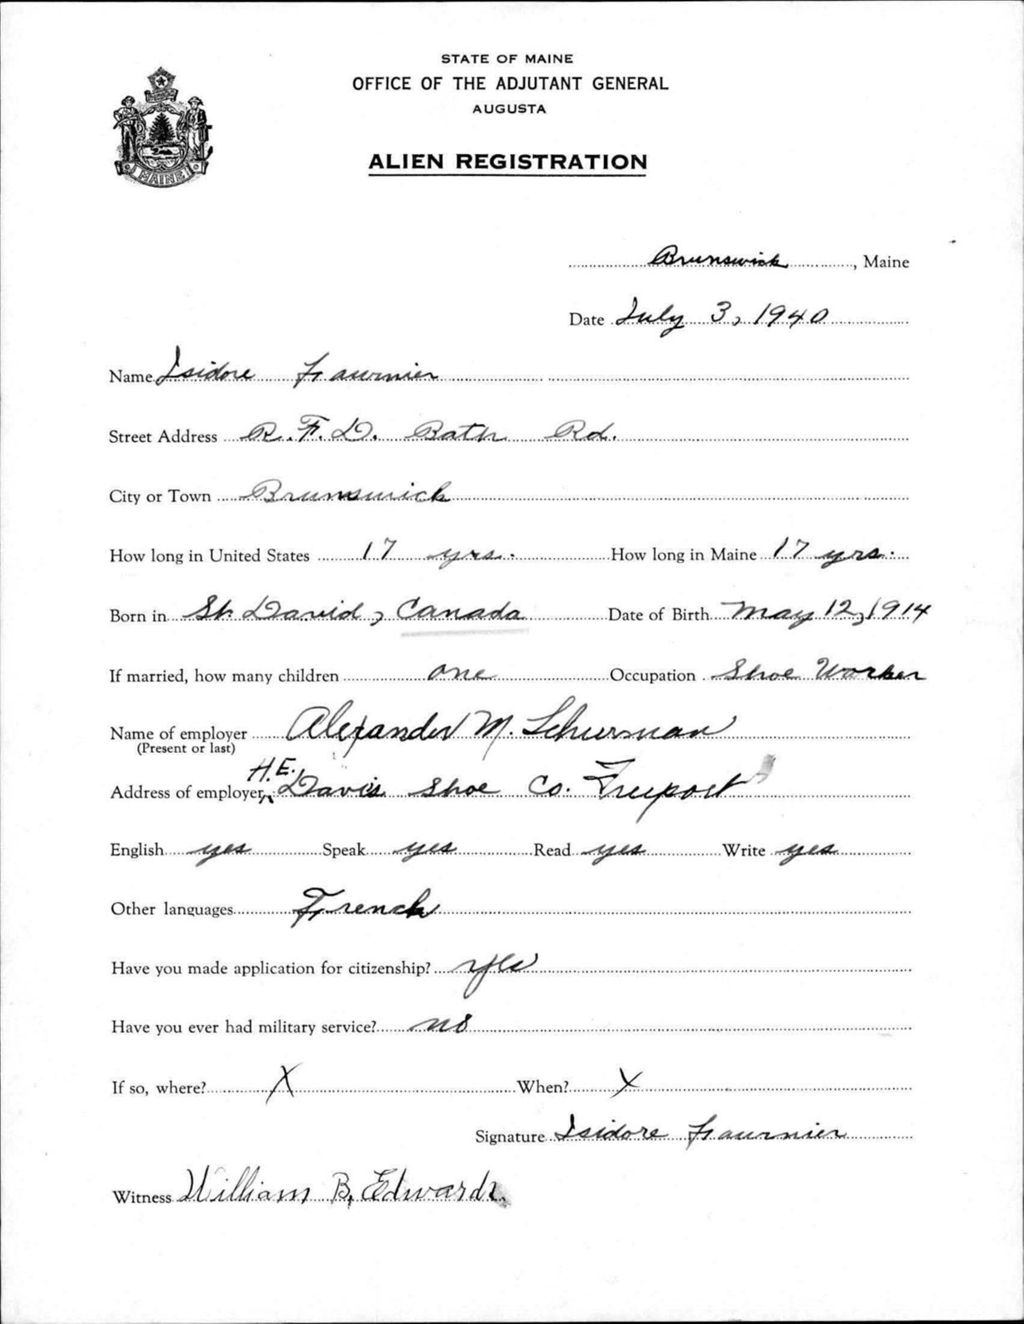 STATE OF MAINE
OFFICE OF THE ADJUTANT GENERAL
AUGUSTA
ALIEN REGISTRATION
MAINE
Brunswick, Maine
Date July 3, 1940
Name Isidore Fournier
Street Address R.F.D. Bath Rd.
City or Town Brunswick
How long in United States 17 yrs. How long in Maine 17 yrs.
Born in St. David, Canada Date of Birth May 12, 1914
If married, how many children one Occupation Shoe Worker
Name of employer Alexander M. Schurman
(Present or last)
Address of employer H.E. Davis Shoe Co. Freeport
English yes Speak yes Read yes Write yes
Other languages French
Have you made application for citizenship? yes
Have you ever had military service? no
If so, where? X When? X
Signature Isidore Fournier
Witness William B. Edwards